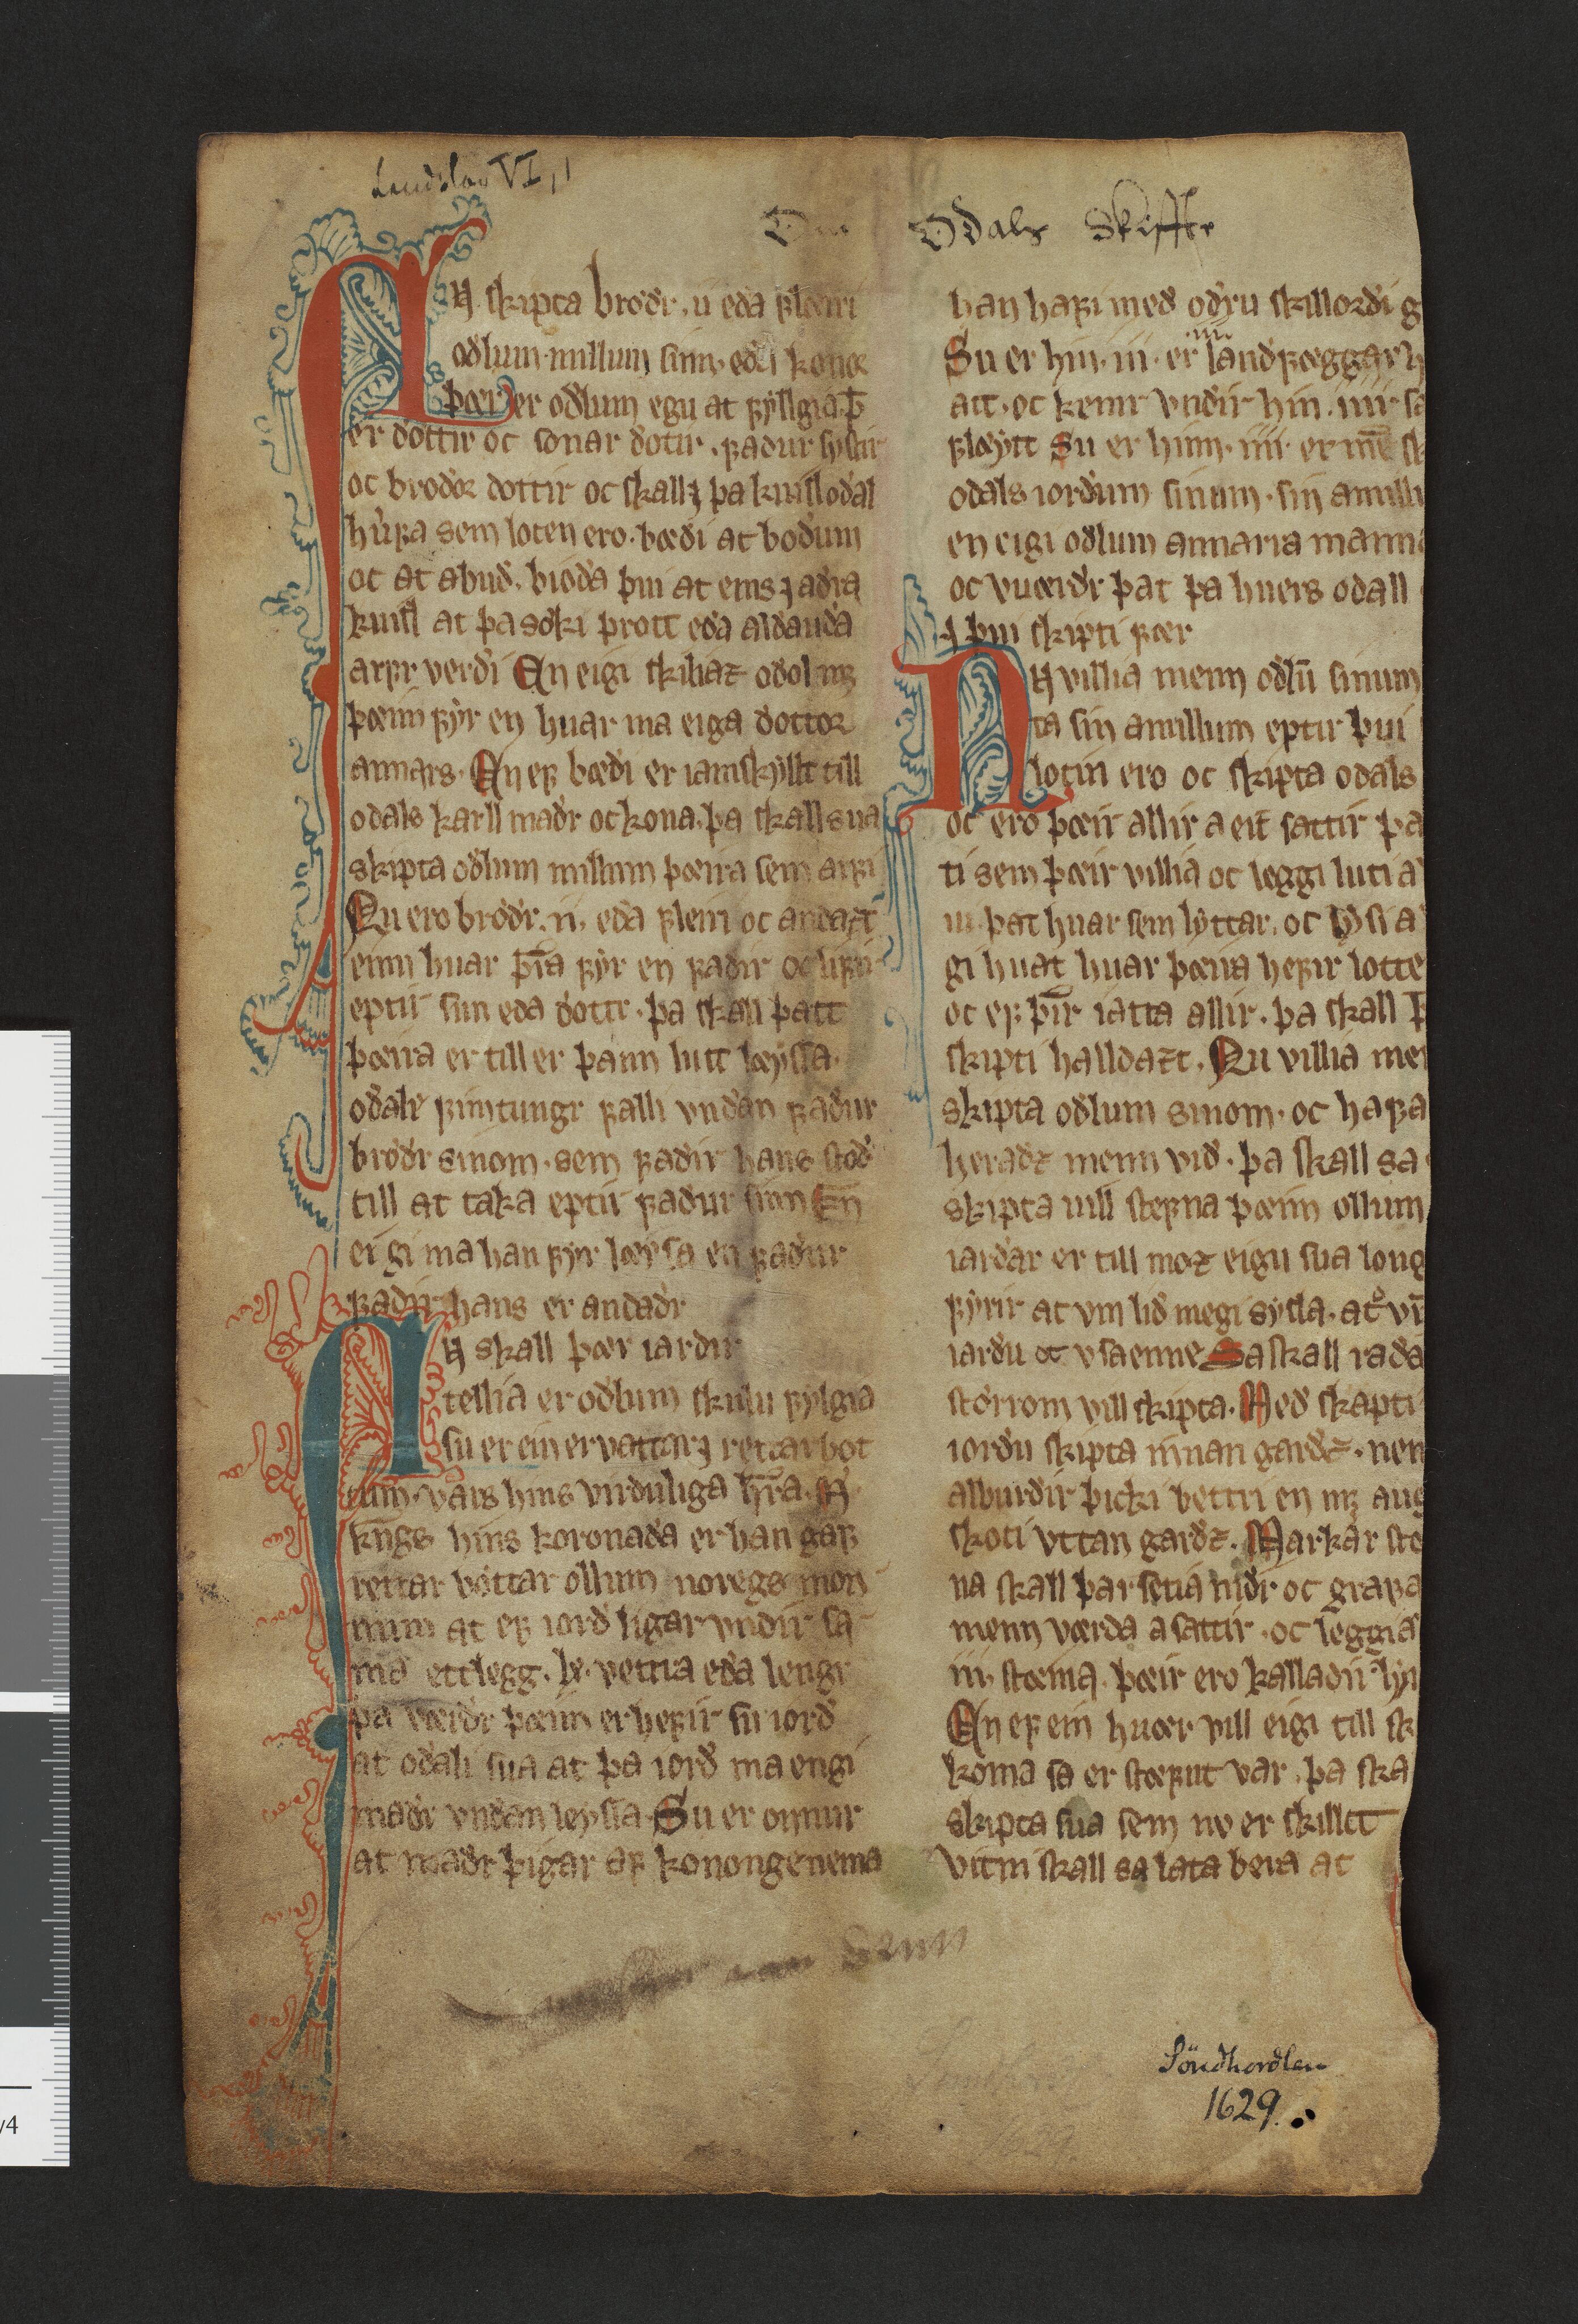 Landslov VI, 1
Odals Skiffte
Nu skipta brødr .ii. eda fleiri
odlum millum sinn. eda konor
þær er odlum egu at fyllgia. þ̄
er dottir oc sonar dotir. fadur systir
oc brodor dottir oc skall ⁊ þa kuisl odal
huþa sem loten ero. bædi at bodum
oc at abud. bioda þui at eins ⁊ adra
kuisl at þa søki þrott eda aldauda
arfr verdi En eigi skiliaz odol mꝫ
þæim fyr en huar ma eiga dottor
annars. En ef bædi er iamskyllt till
odals karll madr oc kona. þa skall sua
skipta odlum millum þæira sem arfi
Nu ero brødr .ii. eda fleiri oc andazt
einn huar þ̄ra fyr en fadir oc lifir
eptir sun eda dottr. þa skall þatt
þæira er till er þann lutt løyssa.
odale fimtungr falli vndan fadur
brødr sinom. sem fadir hans stod
till at taka eptir fadur sinn En
ei gi ma han fyr løysa en fadur
fadir hans er andadr
Nu skall þær iardir
tellia er odlum skulu fylgia
su er ein er vattar ⁊ rettarbot
tum. vars hins virduliga h̄ra. M
kngs hins koronada er han gaf
rettar bøttar ollum noregs mon
num at ef iord ligar vndir sa
ma ettlegg. lx. vettra eda lengr
þa værdr þæim er hefir su iord
at odali sua at þa iord ma engi
madr vndan leyssa. Su er onnur
at madr þigar af konongenema
han hafi med odru skillordi g
Su er hin .iii. er land fæggar h
att. oc kemr vndir hin .iiii. sa
fløytt Su er hinn .iiii. er m̄e sk
odals iordum sinum. sin amilli
en eigi odlum annarra manna
oc vuærdr þat þa huers odall
⁊ þui skipti fær
Nu villia menn odlū sinum
ta sin amillum eptir þui
lotin ero oc skipta odals
oc ero þæir allir a eit sattir þa
ti sem þæir villia oc leggi luti a
iii. þat huar sem lyttar. oc lysi a
gi huat huar þæira hefir lotte
oc ef þ̄ir iatta allir. þa skall þ
skipti halldazt. Nu villia men
skipta odlum sinom. oc hafa
heradz menn vid. þa skall sa
skipta uill stefna þæim ollum
iardar er till moz eigu sua long
fyrir at vm lid megi sysla. at vr
iardu oc vsaenne Sa skall rada
størrom vill skipta. Med skapti
iordu skipta innan gardz. nem
alburdir þicki bettri en mꝫ aug
skoti vttan gardz. Markar ste
na skall þar setia nidr oc grafa
menn værda a sattir. oc leggia
iii. stæina. þæir ero kalladir lyri
En ef ein huær vill eigi till sk
koma sa er stæfnt var. þa ska
skipta sua sem nv er skillt
vitni skall sa lata bera at
Söndhordlen
1629.